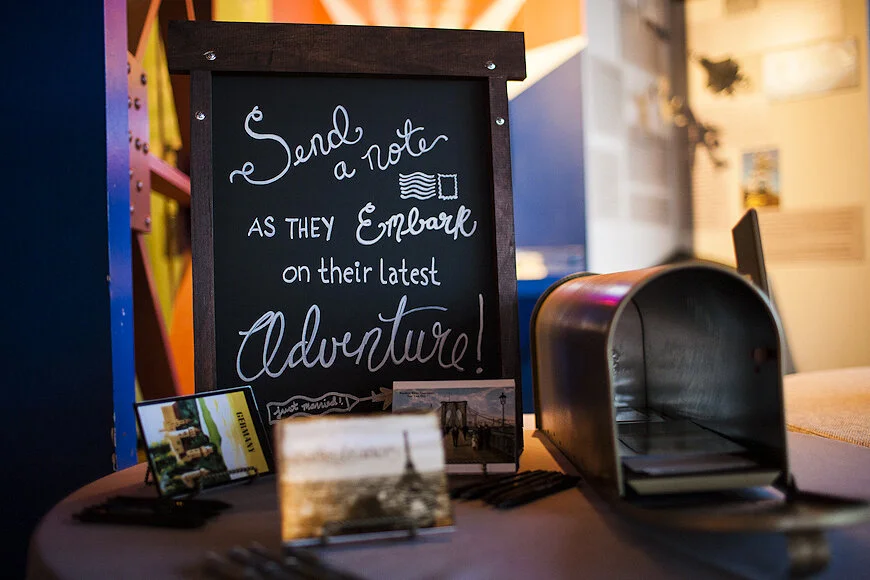 Send
a note
AS THEY Embark
on their latest
Adventure!
just married!
GERMANY